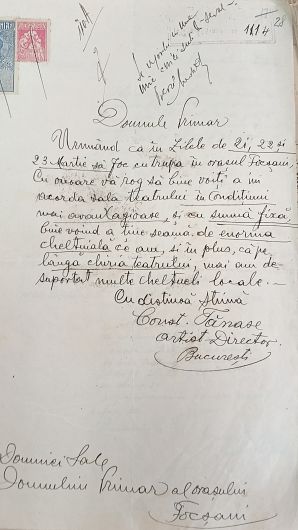 1814
28
Domnule Primar
Urmând ca în zilele de 21, 22 și
23 Martie să joc cu trupa în orașul Focșani,
Cu onoare vă rog să bine voiți a îmi
acorda sala teatrului în Condițiuni
mai avantagioase, și cu sumă fixă,
bine voind a ține seamă de enorma
cheltuială ce am, și în plus, că pe
lângă chiria teatrului, mai am de
suportat multe cheltueli locale. —
Cu distinsă stimă
Const. Tănase
artist Director
București
Domniei Sale
Domnului Primar al orașului
Focșani